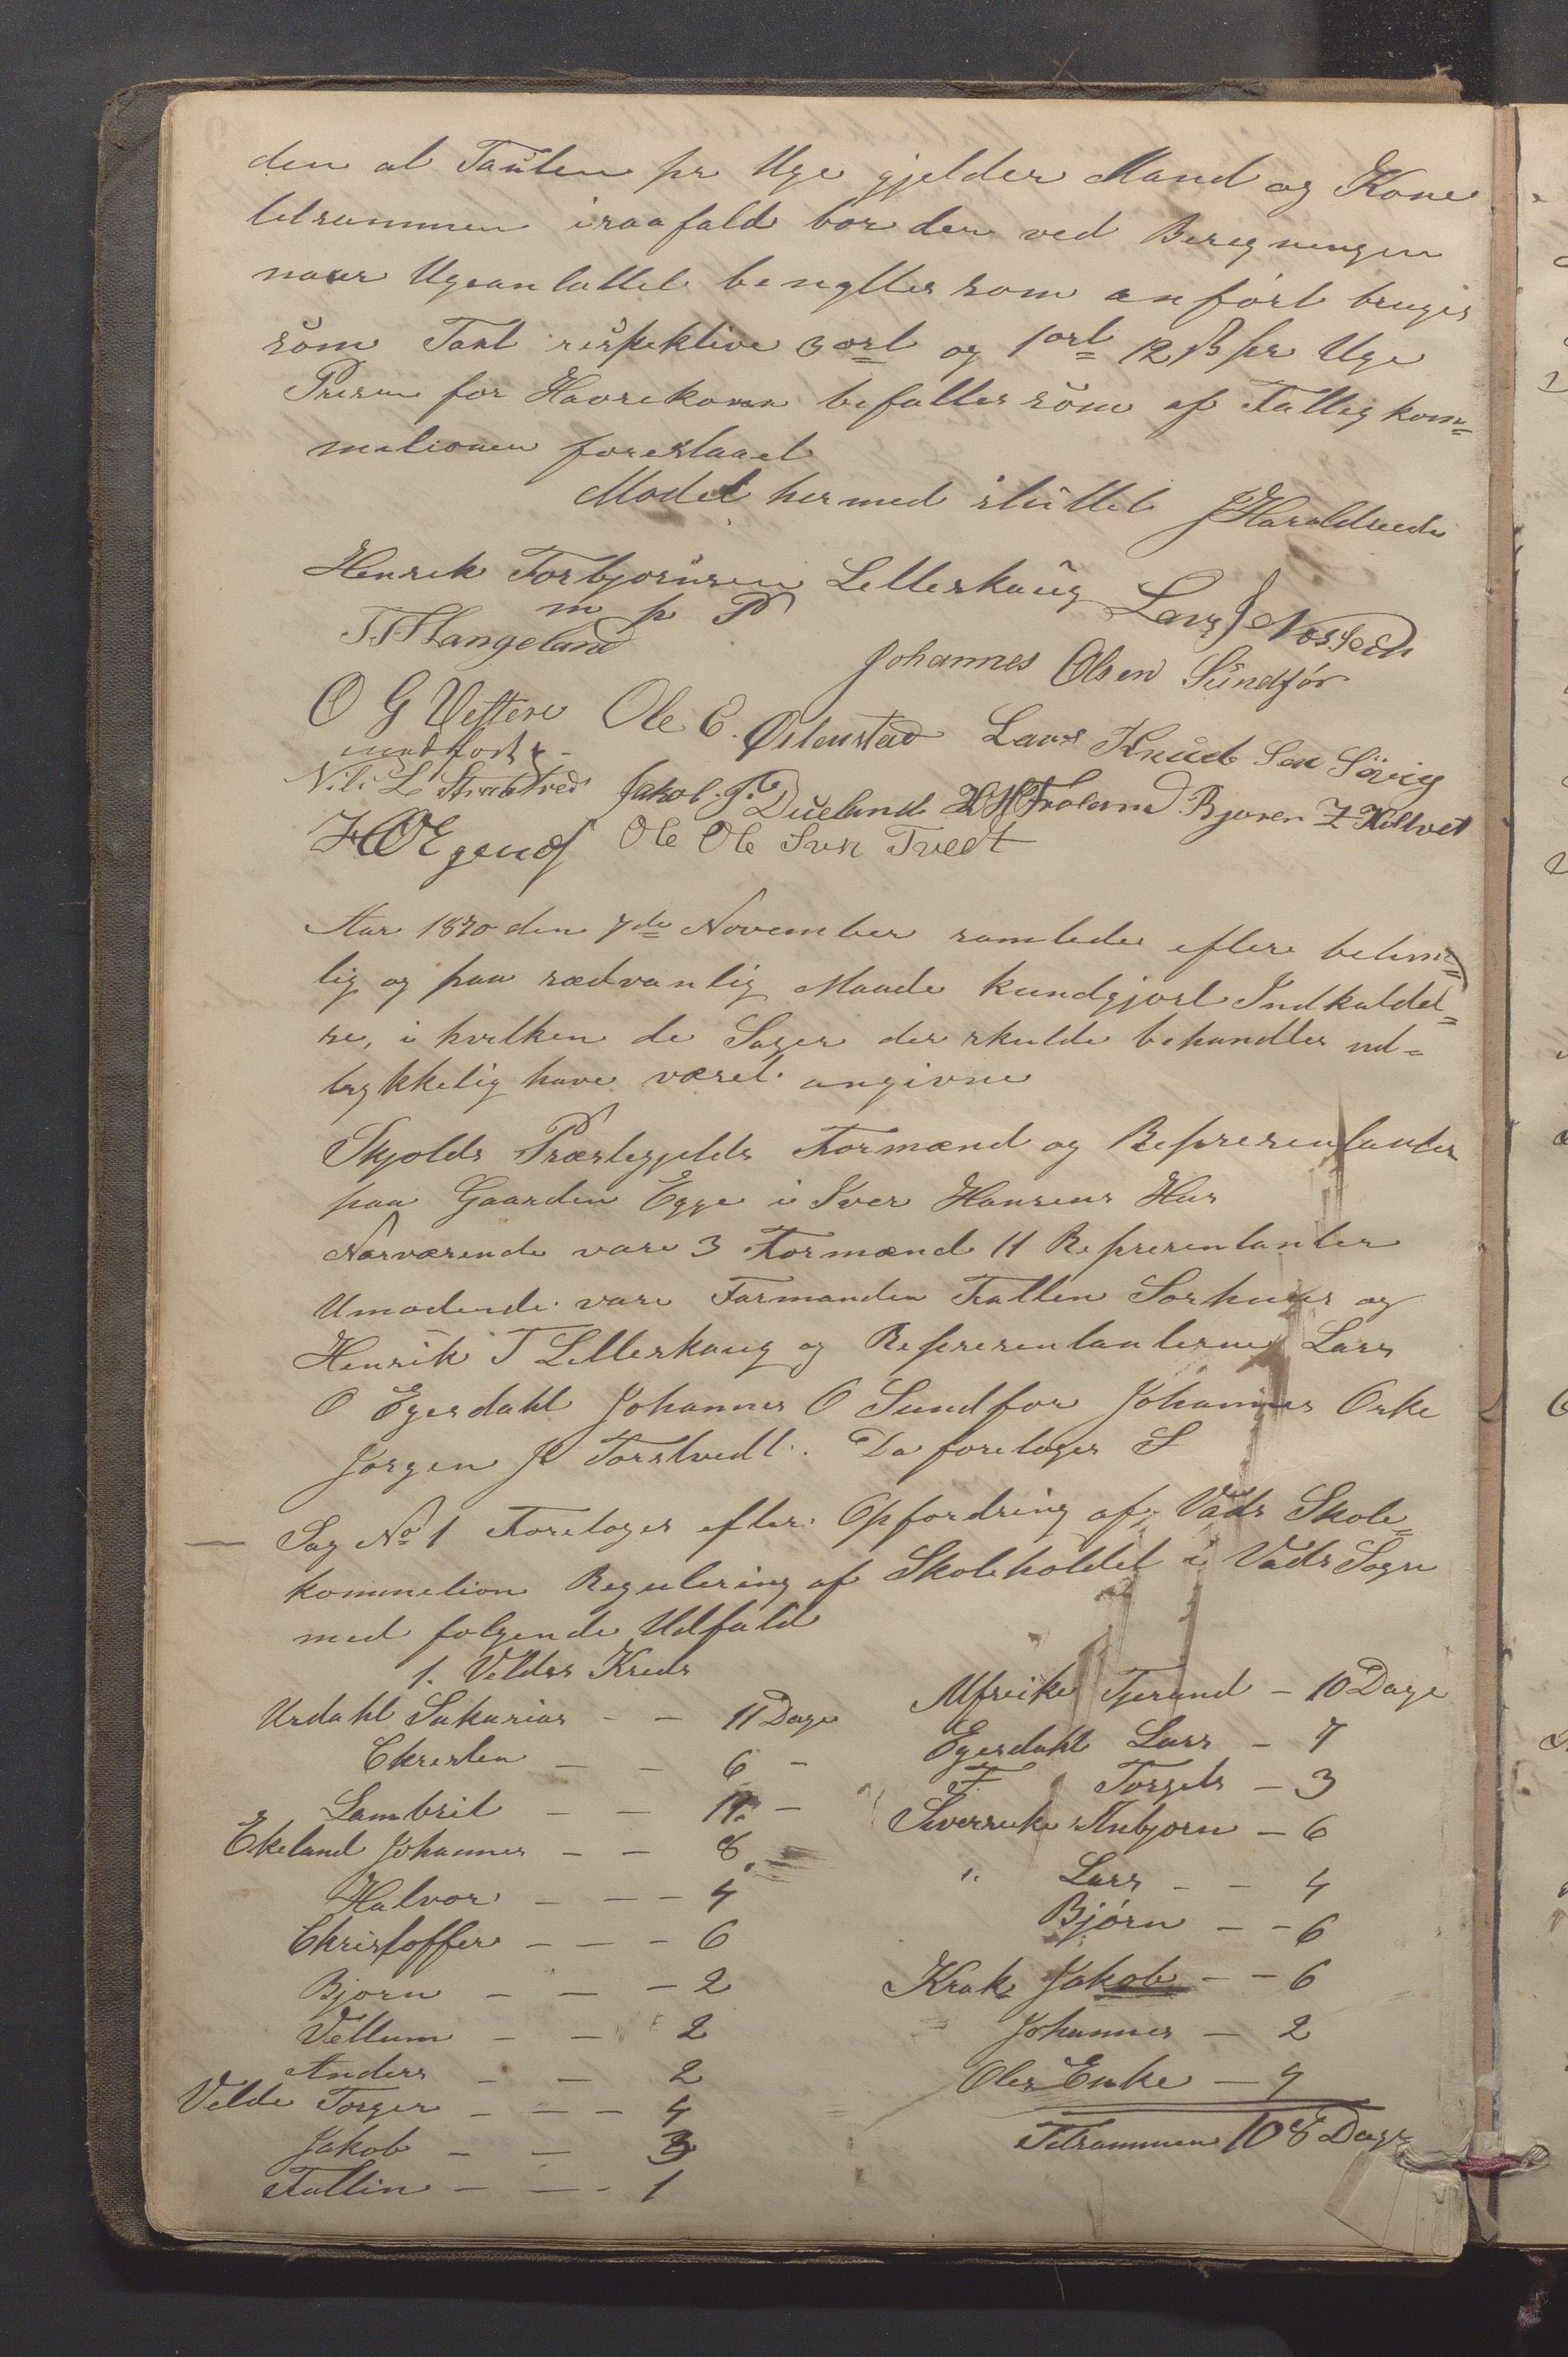 den at Taxten pr Uge gjelder Mand og Kone
tilsammen isaafald bør der ved Beregningen
naar Ugeantallet benyttes som anført bruges
som Taxt respektive 3 ort og 1 ort 12 ß pr Uge
Prisen for Havrekorn befattes som af Fattigkom=
missionen foreslaaet
Mødet hermed sluttet JHaraldseide
Henrik Torbjørnsen Lilleskaug Lars J
m p P
T T Langeland
Johannes Olsen Sundfør
O G Vettere Ole E. Østenstad Lars Knud Sen Sørvig
Nils L Jakob. J. Dueland H H Frøland Bjoren Z
Ole Ole Svn Tvedt
Aar 1870 den 7de November samledes efter betime=
lig og paa sædvanlig Maade kundgjort Indkaldel=
se, i hvilken de Sager der skulde behandles ud=
trykkelig have været angivne
Skjolds Præstegjelds Formænd og Representanter
paa Gaarden Egge i Iver Hansens Hus
Nærværende vare 3 Formænd 11 Representanter
Umødende vare Formanden Tallen Sørhuus og
Henrik T Lilleskaug og Representanterne Lars
O Egesdahl Johannes O Sundfør Johannes Ørke
Jørgen J Torstvedt. Da foretoges S
Sag No 1 Foretoges efter Opfordring af Vads Skole=
kommission Regulering af Skoleholdet i Vads Sogn
med følgende Udfald
1. Veldes Kreds
Urdahl Sakarias - - 11 Dage
Christen - - 6 -
Lambrit - - 11 -
Ekeland Johannes - - 8
Halvor - - - 4
Christoffer - - - 6
Bjørn - - - 2
Villum - - 2
Anders - - 2
Velde Torger - - - 4
Jakob - - 3
Tallin - - - 1
Alfseike Tjerand - 10 Dage
Egesdahl Lars - 7
Torgels - 3
Siverseike Anbjørn - 6
" Lars - - 4
Bjørn - - 6
Krak Jakob - - 6
Johannes - 2
Oles Enke - 4
Tilsammen 108 Dage